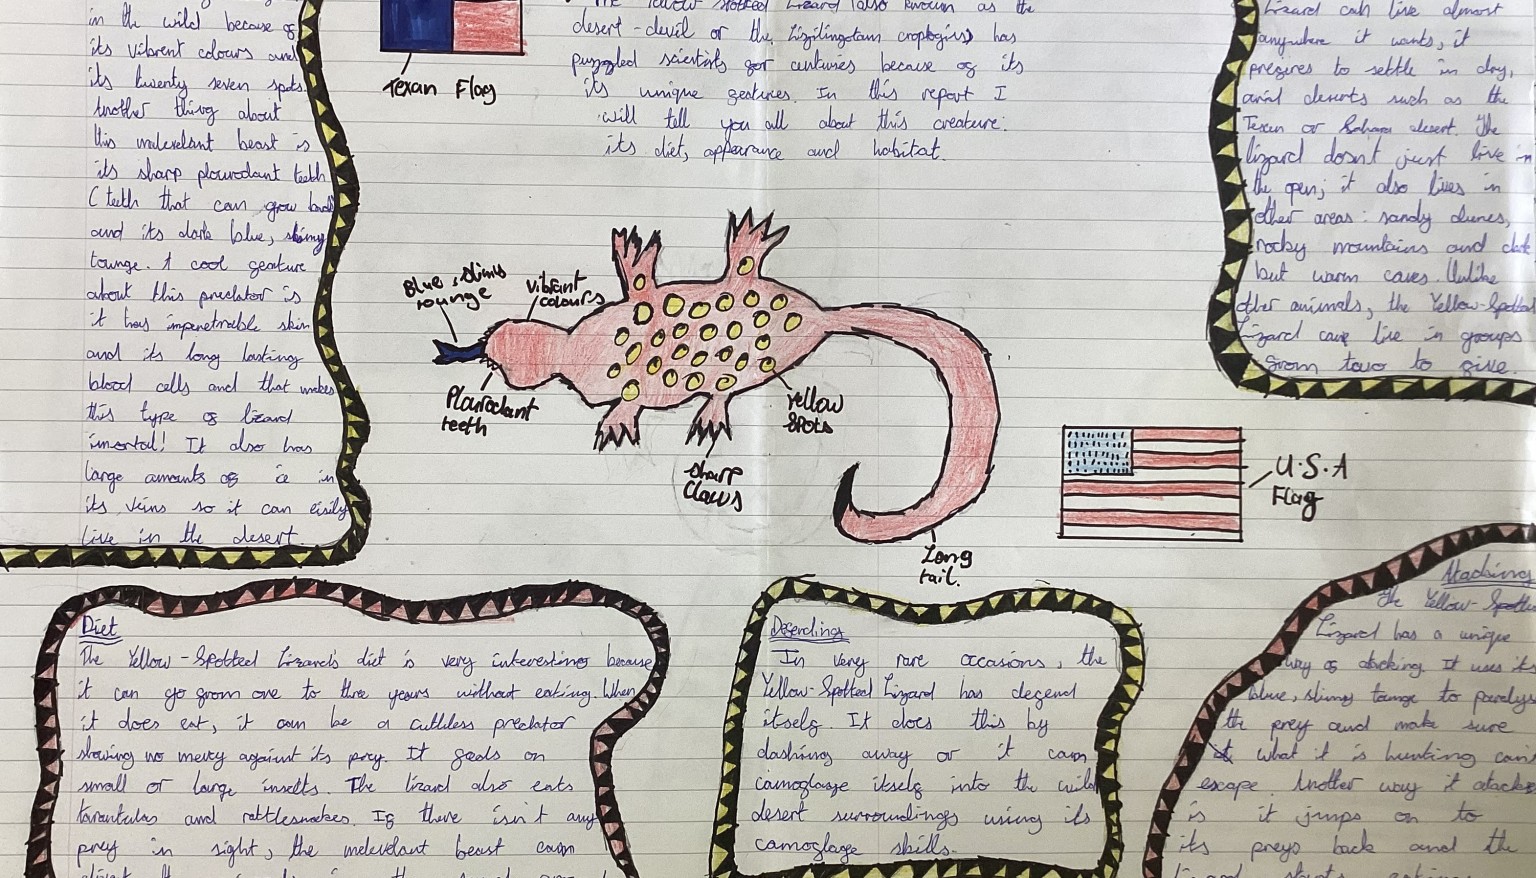 in the wild because of
its vibrent colours and
its twenty seven spots.
Another thing about
this malevelant beast is
its sharp plourodant teeth
(teeth that can grow back)
and its dark blue, slimy
tounge. A cool geature
about this predator is
it has impenetrable skin
and its long lasting
blood cells and that makes
this type of lizard
imortal! It also has
large amounts of ice in
its veins so it can eisily
live in the desert.
Texan Flag
The Yellow Spotted Lizard (also known as the
desert-devil or the) has
puzzled scientists for centuries because of its
its unique features. In this report I
will tell you all about this creature:
its diet, appearance and habitat.
Lizard can live almost
anywhere it wants, it
prefires to settle in dry,
arid deserts such as the
Texan or Sahara desert. The
lizard dosnt just live in
the open; it also lives in
other areas: sandy dunes,
rocky mountains and dark
but warm caves. Unlike
other animals, the Yellow-Spotted
Lizard can live in groups
from two to five.
Blue, slimy
tounge
vibrant
colours
Plourodant
teeth
Yellow
Spots
Sharp
Claws
Long
tail.
U.S.A
Flag
Diet
The Yellow-Spotted Lizard's diet is very interesting because
it can go from one to three years without eating. When
it does eat, it can be a ruthless predator
showing no mercy against its prey. It feeds on
small or large insects. The lizard also eats
tarantulas and rattlesnakes. If there isn't any
prey in sight, the malevelant beast can
Defending
In very rare occasions, the
Yellow-Spotted Lizard has defend
itself. It does this by
dashing away or it can
camoflage itself into the wild
desert surroundings using its
camoflage skills.
Attacking
The Yellow-Spotted
Lizard has a unique
way of atacking. It uses it's
blue, slimy tounge to paralyse
the prey and make sure
what it is hunting can't
escape. Another way it atacks
is it jumps on to
its preys back and the